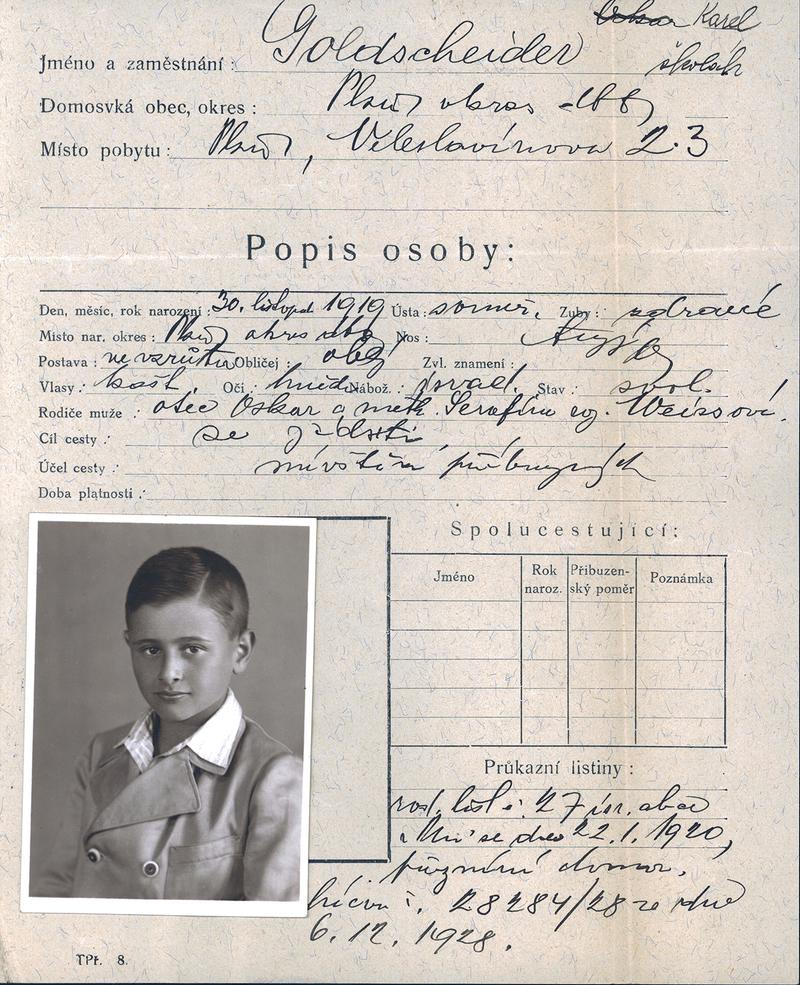 Karel
Jméno a zaměstnání : Goldscheider školák
Domosvká obec, okres : Plzeň okres
Místo pobytu : Plzeň, Veleslavínova 23
Popis osoby:
Den, měsíc, rok narození : 30. listopad 1919 Ústa : souměr. Zuby : zdravé
Místo nar. okres : Plzeň okres Nos :
Postava : Obličej : obl. Zvl. znamení :
Vlasy : kašt. Oči : hnědé Nábož. : israel. Stav : svob.
Rodiče muže : otec Oskar a matk. Serafína roz. Weissová.
Cíl cesty :
Účel cesty : příbuzných
Doba platnosti :
Spolucestující:
Jméno Rok naroz. Přibuzenský poměr Poznámka
Průkazní listiny :
rod. list č. 27 isr. obce
se dne 22.1.1920,
přiznání domov.
č. 28284/28 ze dne
6.12.1928.
TPř. 8.